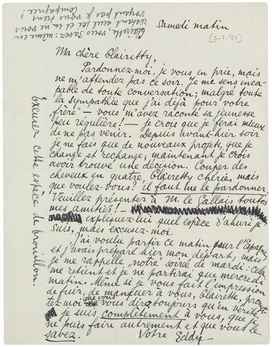 Samedi matin
Ma chère Clairetty,
Pardonnez-moi, je vous en prie, mais
ne m'attendez pas ce soir. Je me sens inca-
pable de toute conversation, malgré toute
la sympathie que j'ai déjà pour votre
frère - vous m'avez raconté sa jeunesse
peu régulière! - je crois que je ferai mieux
de ne pas venir. Depuis avant-hier soir
je ne fais que de nouveaux projets, que je
change et rechange, maintenant je crois
avoir trouvé une décision. Couper des
cheveux en quatre Clairetty chérie, mais
que voulez-vous? il faut me le pardonner.
Veuillez présenter à M. le Gallais toutes
mes amitiés!
expliquez-lui quel espèce d'ahuri je
suis, mais excusez-moi.
J'ai voulu partir ce matin pour
et j'avais préparé hier mon départ, mais
je me rappelle, notre soirée de mardi: cela
me retient et je ne partirai que mercredi
matin. Même si je vous fais l'impression
de fuir, de manquer à vous, Clairette,
-moi que je vous dirai toujours que en vérité
je suis complètement à vous,
ne puis faire autrement et que vous le
savez. Votre Eddy
Excusez cette espèce de brouillon.